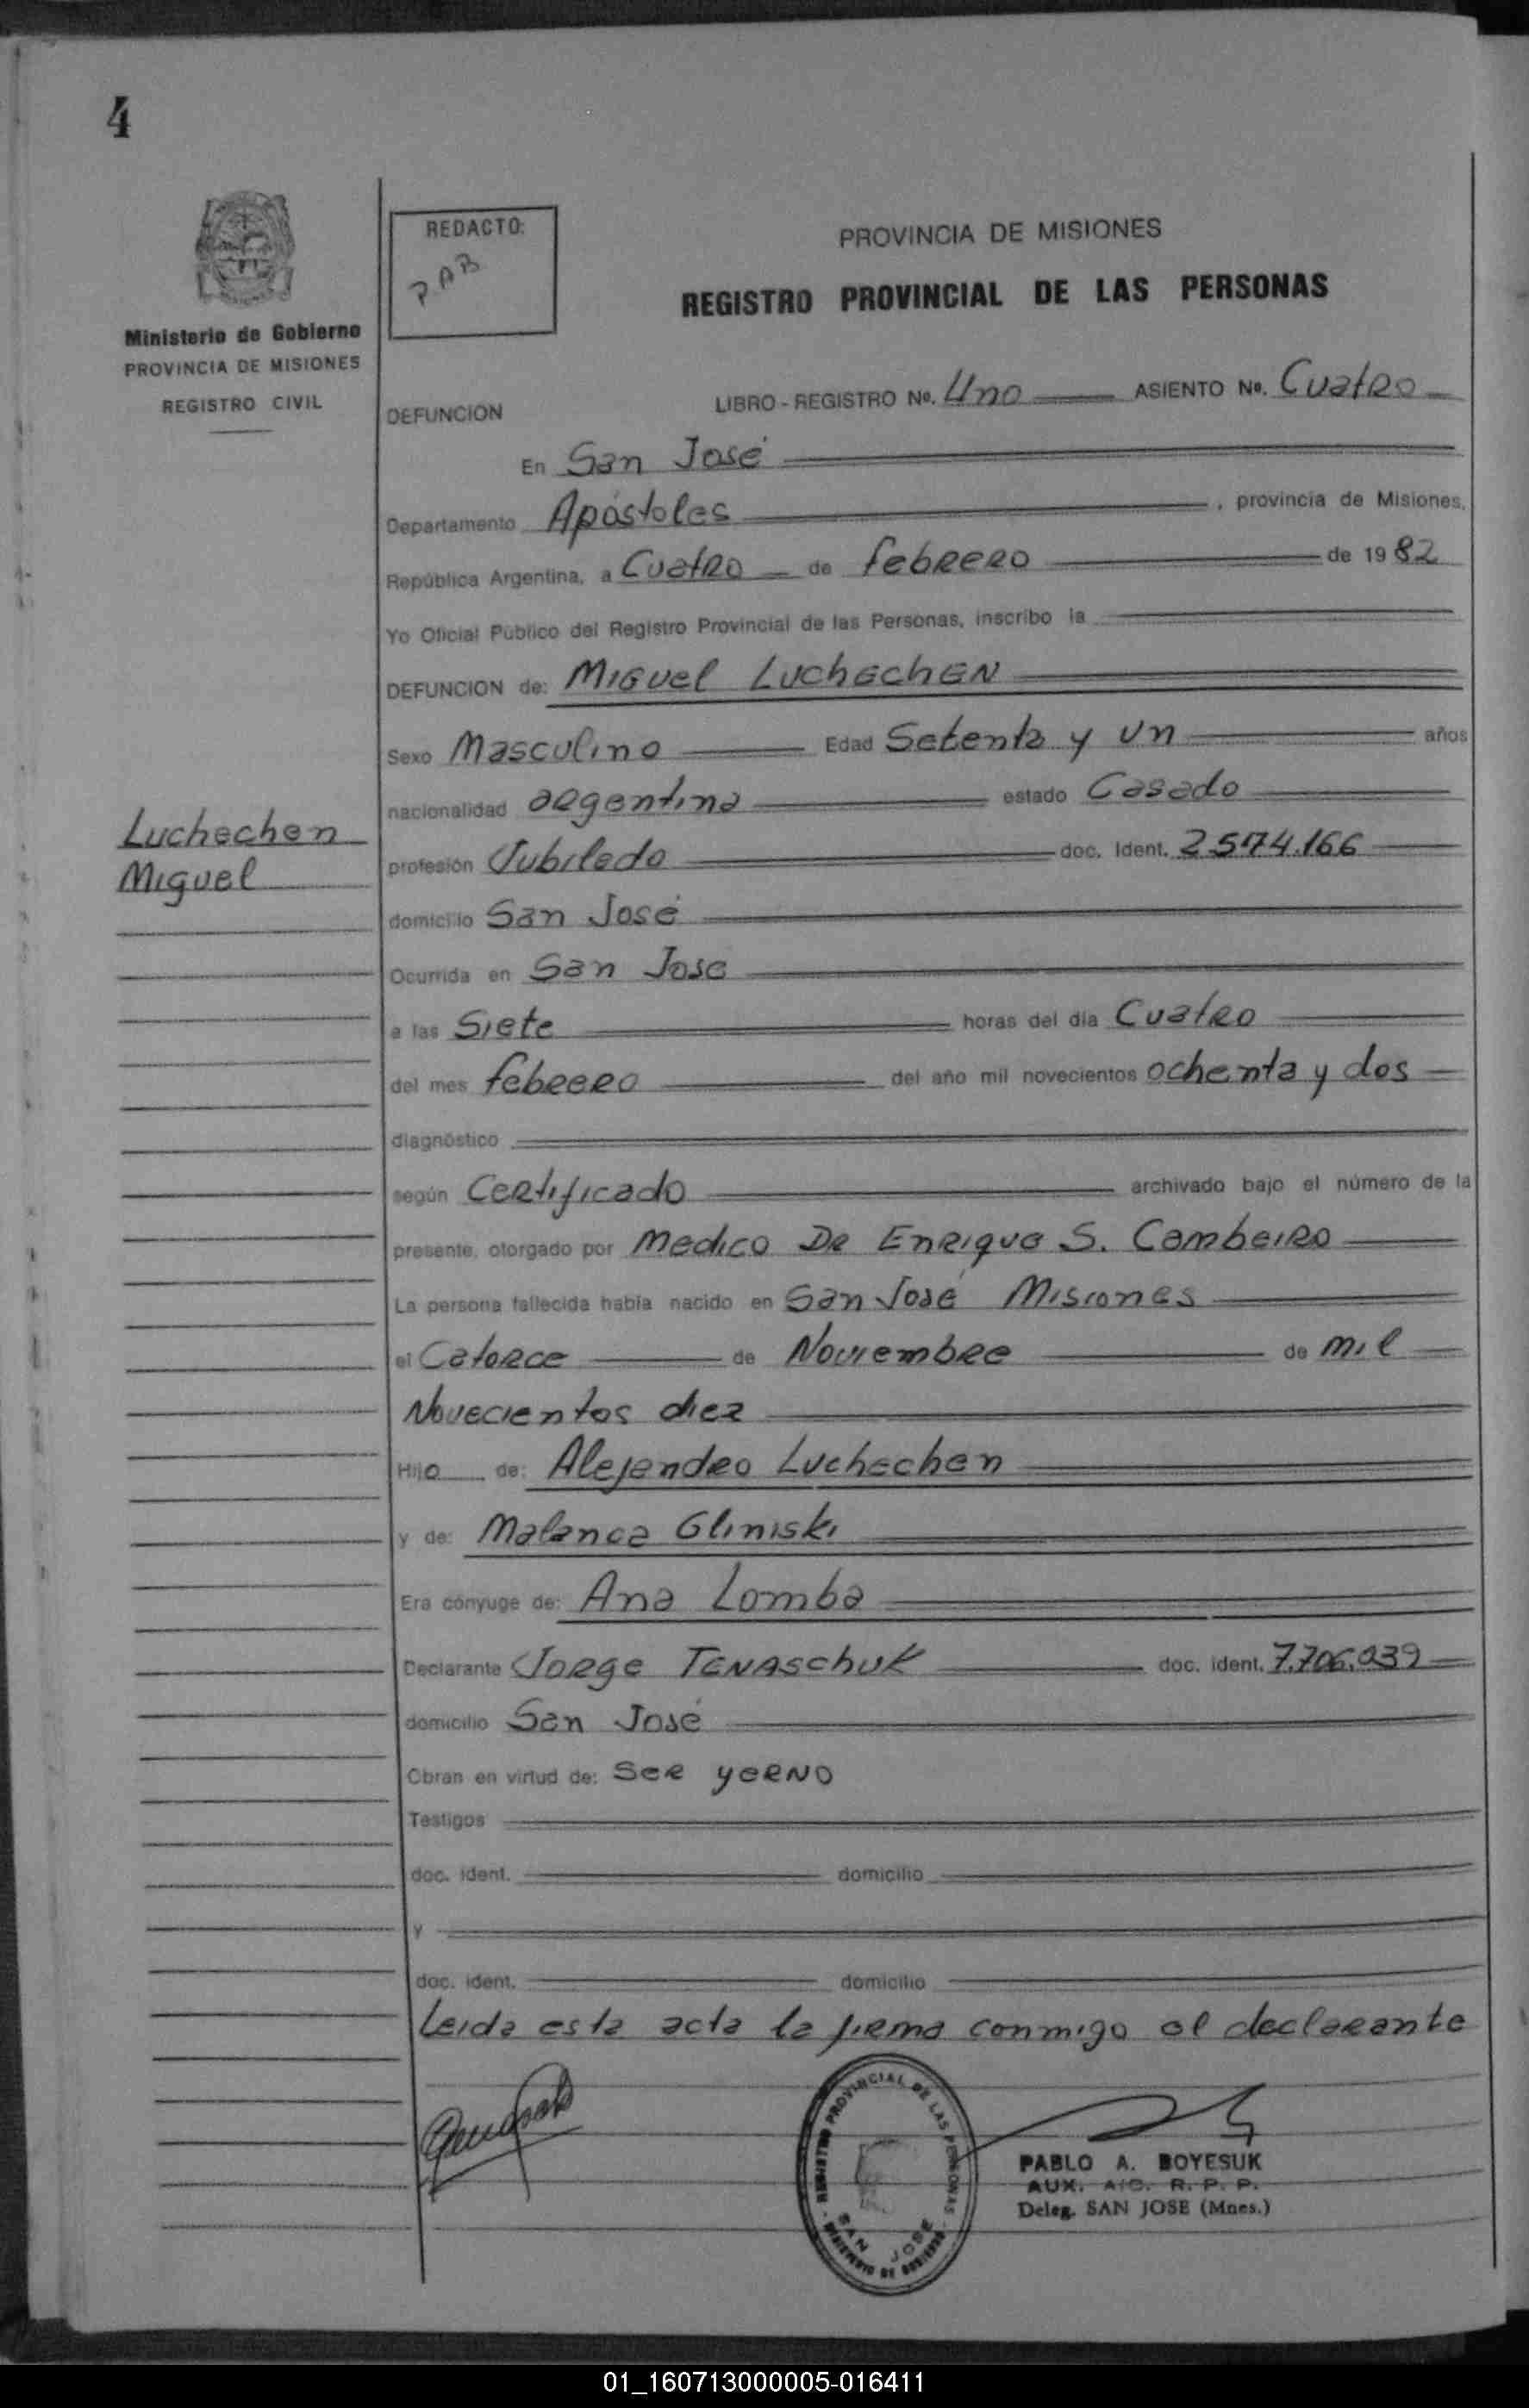 4
REDACTO:
P.A.B
PROVINCIA DE MISIONES
REGISTRO PROVINCIAL DE LAS PERSONAS
Ministerio de Gobierno
PROVINCIA DE MISIONES
REGISTRO CIVIL
LIBRO - REGISTRO Nº. Uno ASIENTO Nº. Cuatro
DEFUNCION
En San José
Departamento Apóstoles, provincia de Misiones,
República Argentina, a Cuatro de febrero de 1982
Yo Oficial Público del Registro Provincial de las Personas, inscribo la
DEFUNCION de: Miguel Luchechen
Sexo Masculino Edad Setenta y un años
nacionalidad argentina estado Casado
Luchechen
Miguel
profesión Jubilado doc. Ident. 2.574.166
domicilio San José
Ocurrida en San Jose
a las Siete horas del día Cuatro
del mes febrero del año mil novecientos ochenta y dos
diagnóstico
según Certificado archivado bajo el número de la
presente, otorgado por Medico Dr Enrique S. Cambeiro
La persona fallecida había nacido en San José Misiones
el Catorce de Noviembre de mil
Novecientos diez
Hijo de: Alejandro Luchechen
y de: Malanca Gliniski
Era cónyuge de: Ana Lomba
Declarante Jorge Tenaschuk doc. ident. 7.706.039
domicilio San José
Obran en virtud de: ser yerno
Testigos
doc. ident. domicilio
y
doc. ident. domicilio
Leida esta acta la firma conmigo el declarante
REGISTRO PROVINCIAL DE LAS PERSONAS
SAN JOSE
MINISTERIO DE GOBIERNO
PABLO A. BOYESUK
AUX. A/C. R. P. P.
Deleg. SAN JOSE (Mnes.)
01_160713000005-016411